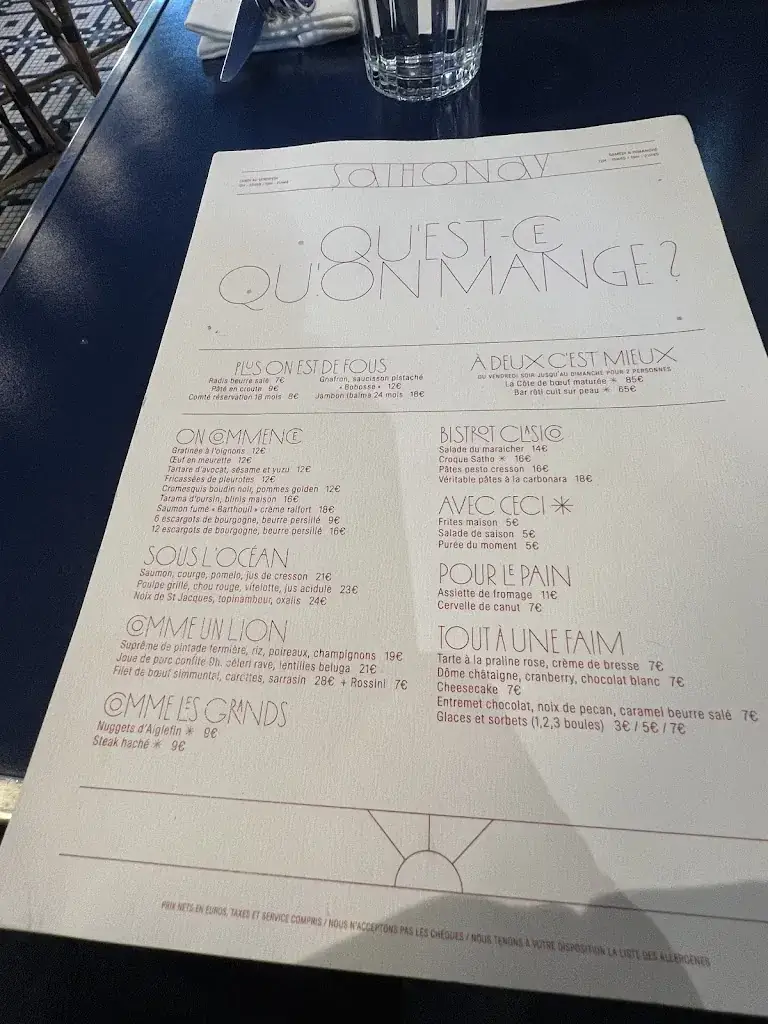 SATHONAY
QU'EST-CE
QU'ON MANGE ?
PLUS ON EST DE FOUS
Radis beurre salé 7€
Pâté en croûte 9€
Comté réservation 18 mois 8€
Gnafron, saucisson pistaché
« Bobosse » 12€
Jambon Ibaïma 24 mois 18€
À DEUX C'EST MIEUX
DU VENDREDI SOIR JUSQU'AU DIMANCHE POUR 2 PERSONNES
La Côte de bœuf maturée ✳ 85€
Bar rôti cuit sur peau ✳ 65€
ON COMMENCE
Gratinée à l'oignons 12€
Œuf en meurette 12€
Tartare d'avocat, sésame et yuzu 12€
Fricassées de pleurotes 12€
Cromesquis boudin noir, pommes golden 12€
Tarama d'oursin, blinis maison 16€
Saumon fumé « Barthouil » crème raifort 18€
6 escargots de bourgogne, beurre persillé 9€
12 escargots de bourgogne, beurre persillé 16€
SOUS L'OCÉAN
Saumon, courge, pomelo, jus de cresson 21€
Poulpe grillé, chou rouge, vitelotte, jus acidulé 23€
Noix de St Jacques, topinambour, oxalis 24€
COMME UN LION
Suprême de pintade fermière, riz, poireaux, champignons 19€
Joue de porc confite 9h, céleri rave, lentilles beluga 21€
Filet de bœuf simmental, carottes, sarrasin 28€ + Rossini 7€
COMME LES GRANDS
Nuggets d'Aiglefin ✳ 9€
Steak haché ✳ 9€
BISTROT CLASICO
Salade du maraîcher 14€
Croque Satho ✳ 16€
Pâtes pesto cresson 16€
Véritable pâtes à la carbonara 18€
AVEC CECI ✳
Frites maison 5€
Salade de saison 5€
Purée du moment 5€
POUR LE PAIN
Assiette de fromage 11€
Cervelle de canut 7€
TOUT À UNE FAIM
Tarte à la praline rose, crème de bresse 7€
Dôme châtaigne, cranberry, chocolat blanc 7€
Cheesecake 7€
Entremet chocolat, noix de pecan, caramel beurre salé 7€
Glaces et sorbets (1,2,3 boules) 3€ / 5€ / 7€
PRIX NETS EN EUROS, TAXES ET SERVICE COMPRIS / NOUS N'ACCEPTONS PAS LES CHÈQUES / NOUS TENONS À VOTRE DISPOSITION LA LISTE DES ALLERGÈNES